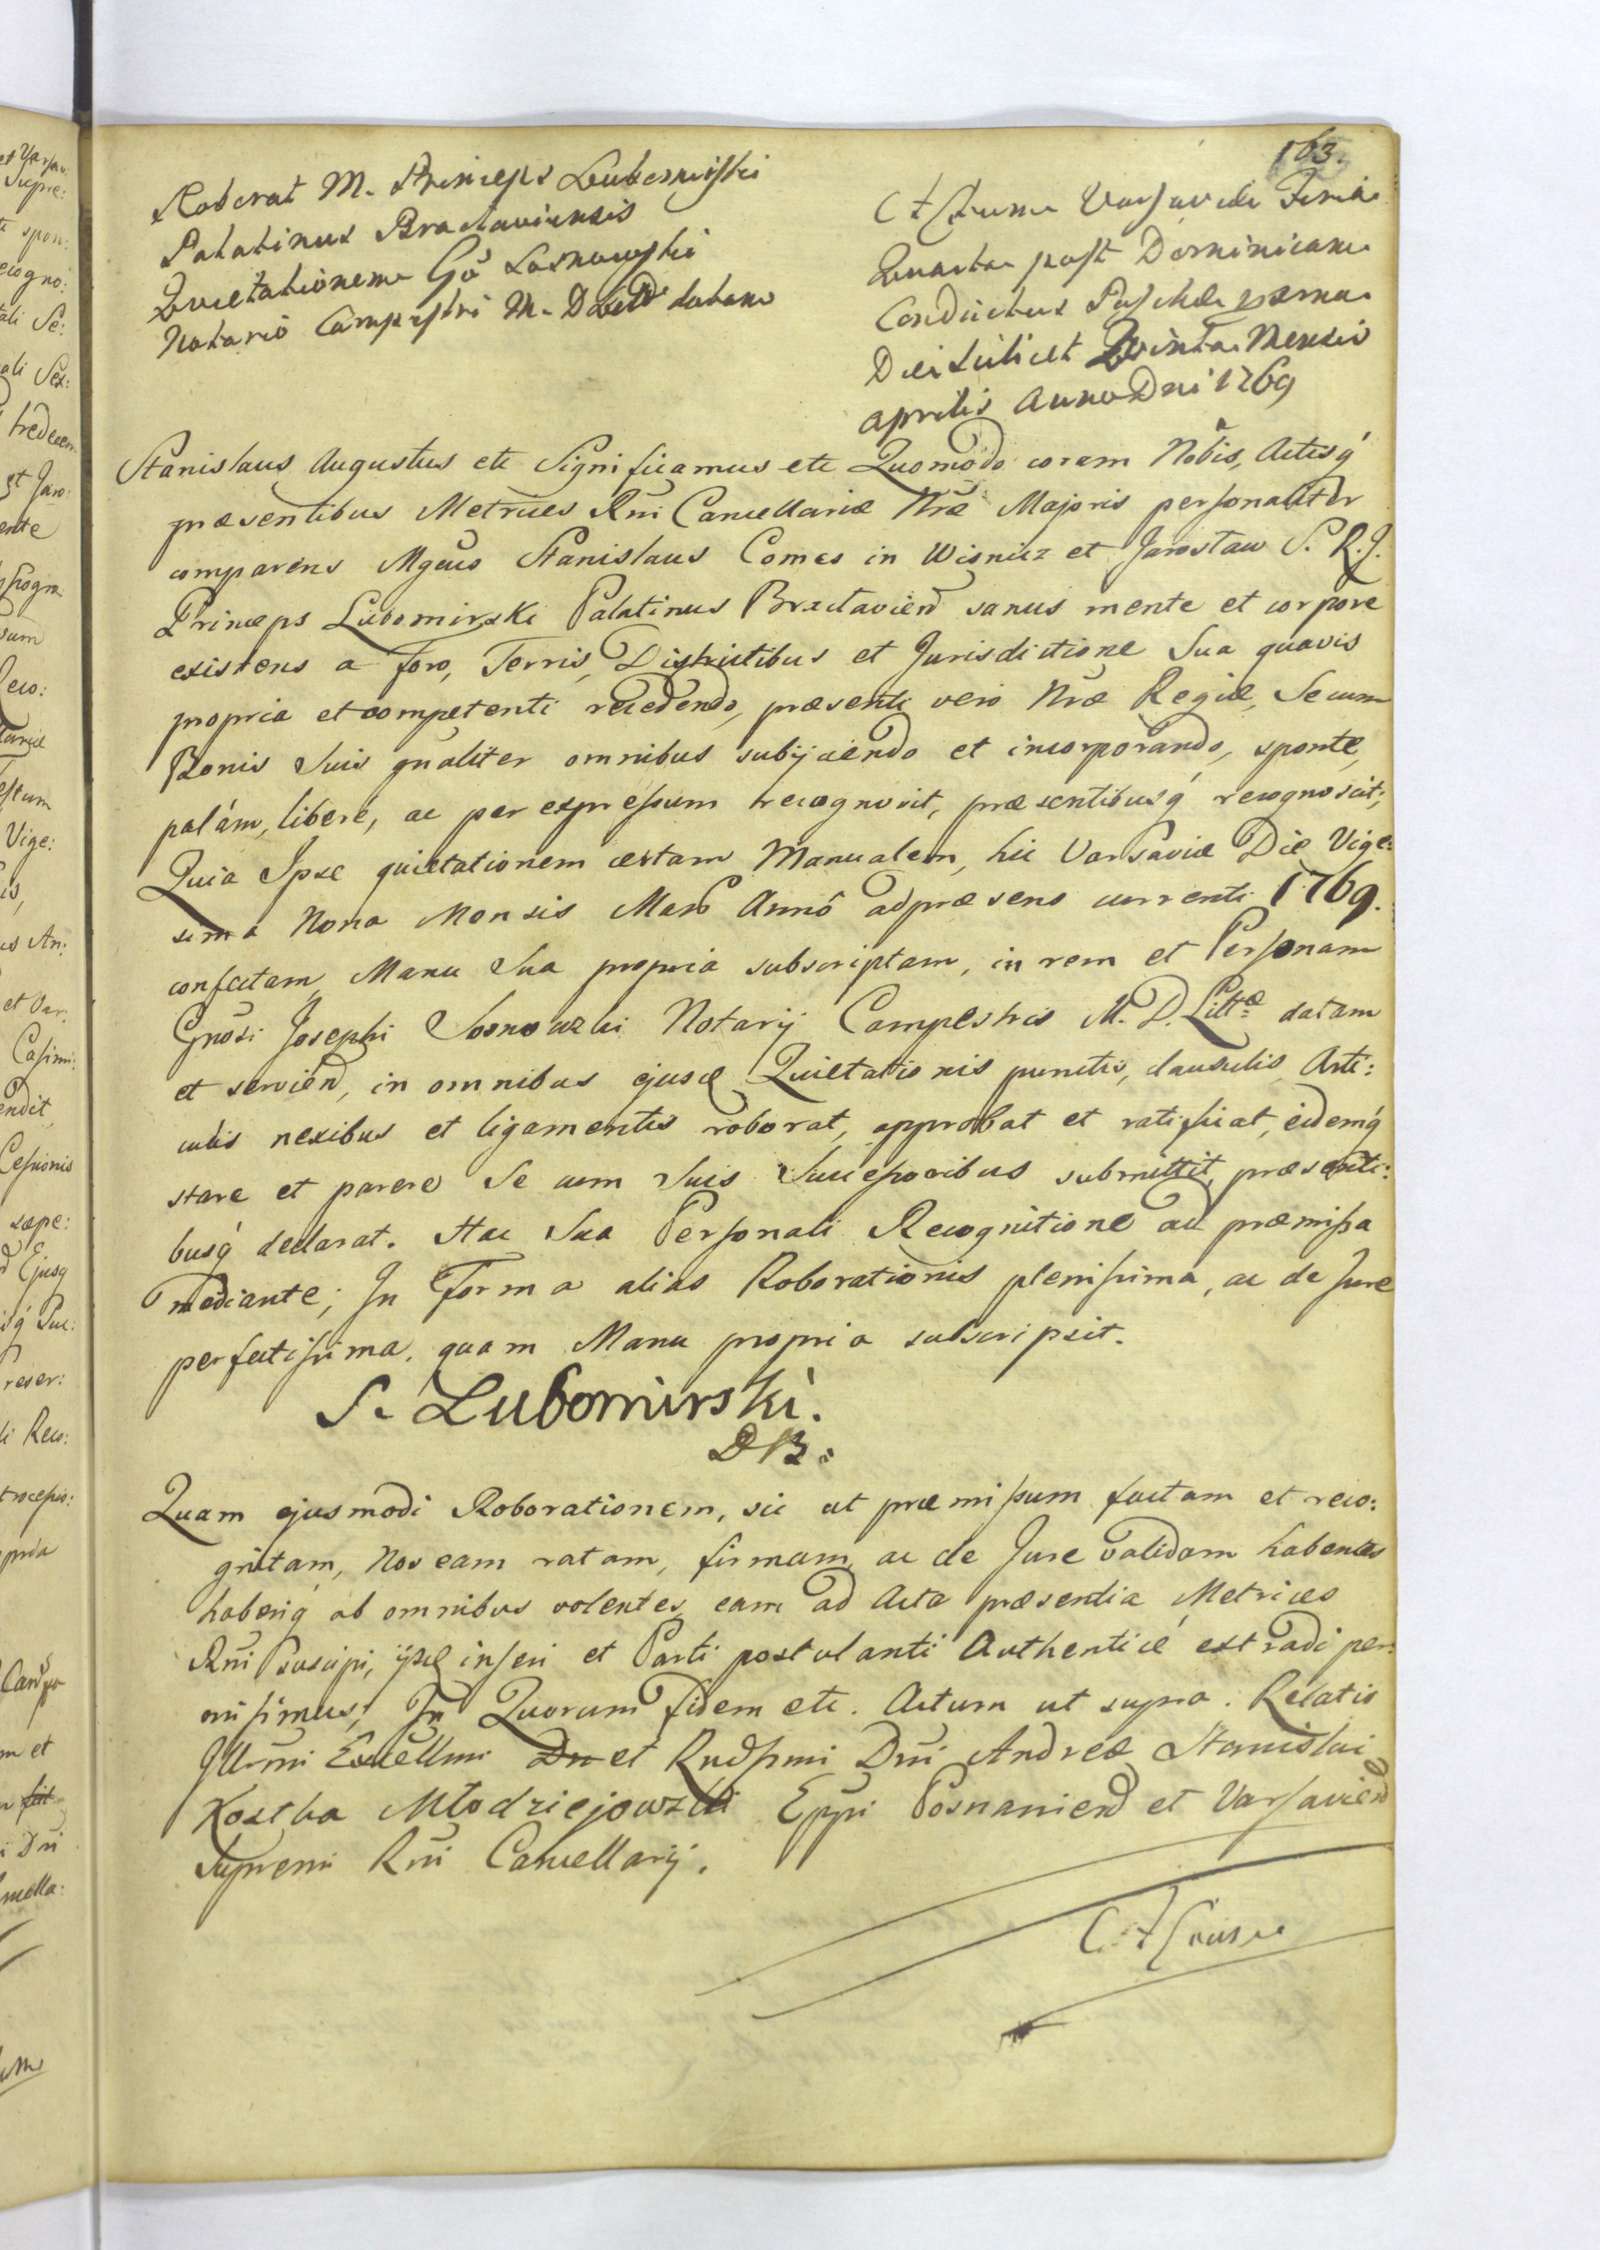 163.
Roborat M. Princeps Lubomirski
Palatinus Braclaviensis
Quietationem Gō Sosnowski
Notario Campestri M. D. Litt. datam
Actum Varsaviæ Feria
Quarta post Dominicam
Conductus Paschæ
Die scilicet Quinta Mensis
Aprilis Anno Dni 1769
Stanislaus Augustus etc Significamus etc Quomodo coram Nobis, Actisq́
præsentibus Metrices Rńi Cancellariæ Nrǣ Majoris personaliter
comparens Mgcus Stanislaus Comes in Wisnicz et Jarosław S. R. J.
Princeps Lubomirski Palatinus Braclavien̄ sanus mente et corpore
existens a foro, Terris, Districtibus et Jurisdictione Sua quavis
propria et competenti recedendo, præsenti vero Nrǣ Regiæ, Se cum
Bonis Suis gńaliter omnibus subijciendo et incorporando, sponte,
palám, liberé, ac per expressum recognovit, præsentibusq́ recognoscit;
Quia Ipse quietationem certam Manualem, hic Varsaviæ Die Vige:
sima Nona Mensis Martÿ Annô adpræsens currenti 1769.
confectam, Manu Sua propria subscriptam, in rem et Personam
Gńosi Josephi Sosnowzki Notarij Campestris M. D. Littæ datam
et servien̄, in omnibus ejusd Quietationis punctis, clausulis Arti:
culis nexibus et ligamentis roborat, approbat et ratificat, eidemq́
stare et parere Se cum Suis Successoribus submittit, præsenti:
busq́ declarat. Hac Sua Personali Recognitione ad præmissa
mediante; In Forma alias Roborationis plenissima, ac de Jure
perfectissima. quam Manu propria subscripsit.
S. Lubomirski.
Quam ejusmodi Roborationem, sic ut præmissum factam et reco:
gnitam, Nos eam ratam, firmam, ac de Jure validam habentes
haberiq́ ab omnibus volentes, eam ad Acta præsentia Metrices
Rńi suscipi, ijsd inseri et Parti postulanti Authenticé extradi per:
misimus; In Quorum fidem etc. Actum ut supra. Relatio
Illrńi Excellmi Dn et Rndssmi Dńi Andreæ Stanislai
Kostka Młodziejowzki Eppi Posnanien̄ et Varsavien̄
Supremi Rńi Cancellarij.